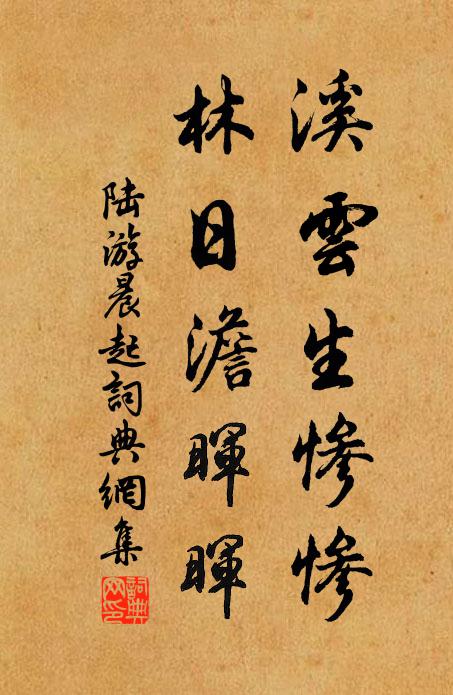 溪雲生慘慘
林日澹暉暉
陸游晨起詞典網集
詞典網印